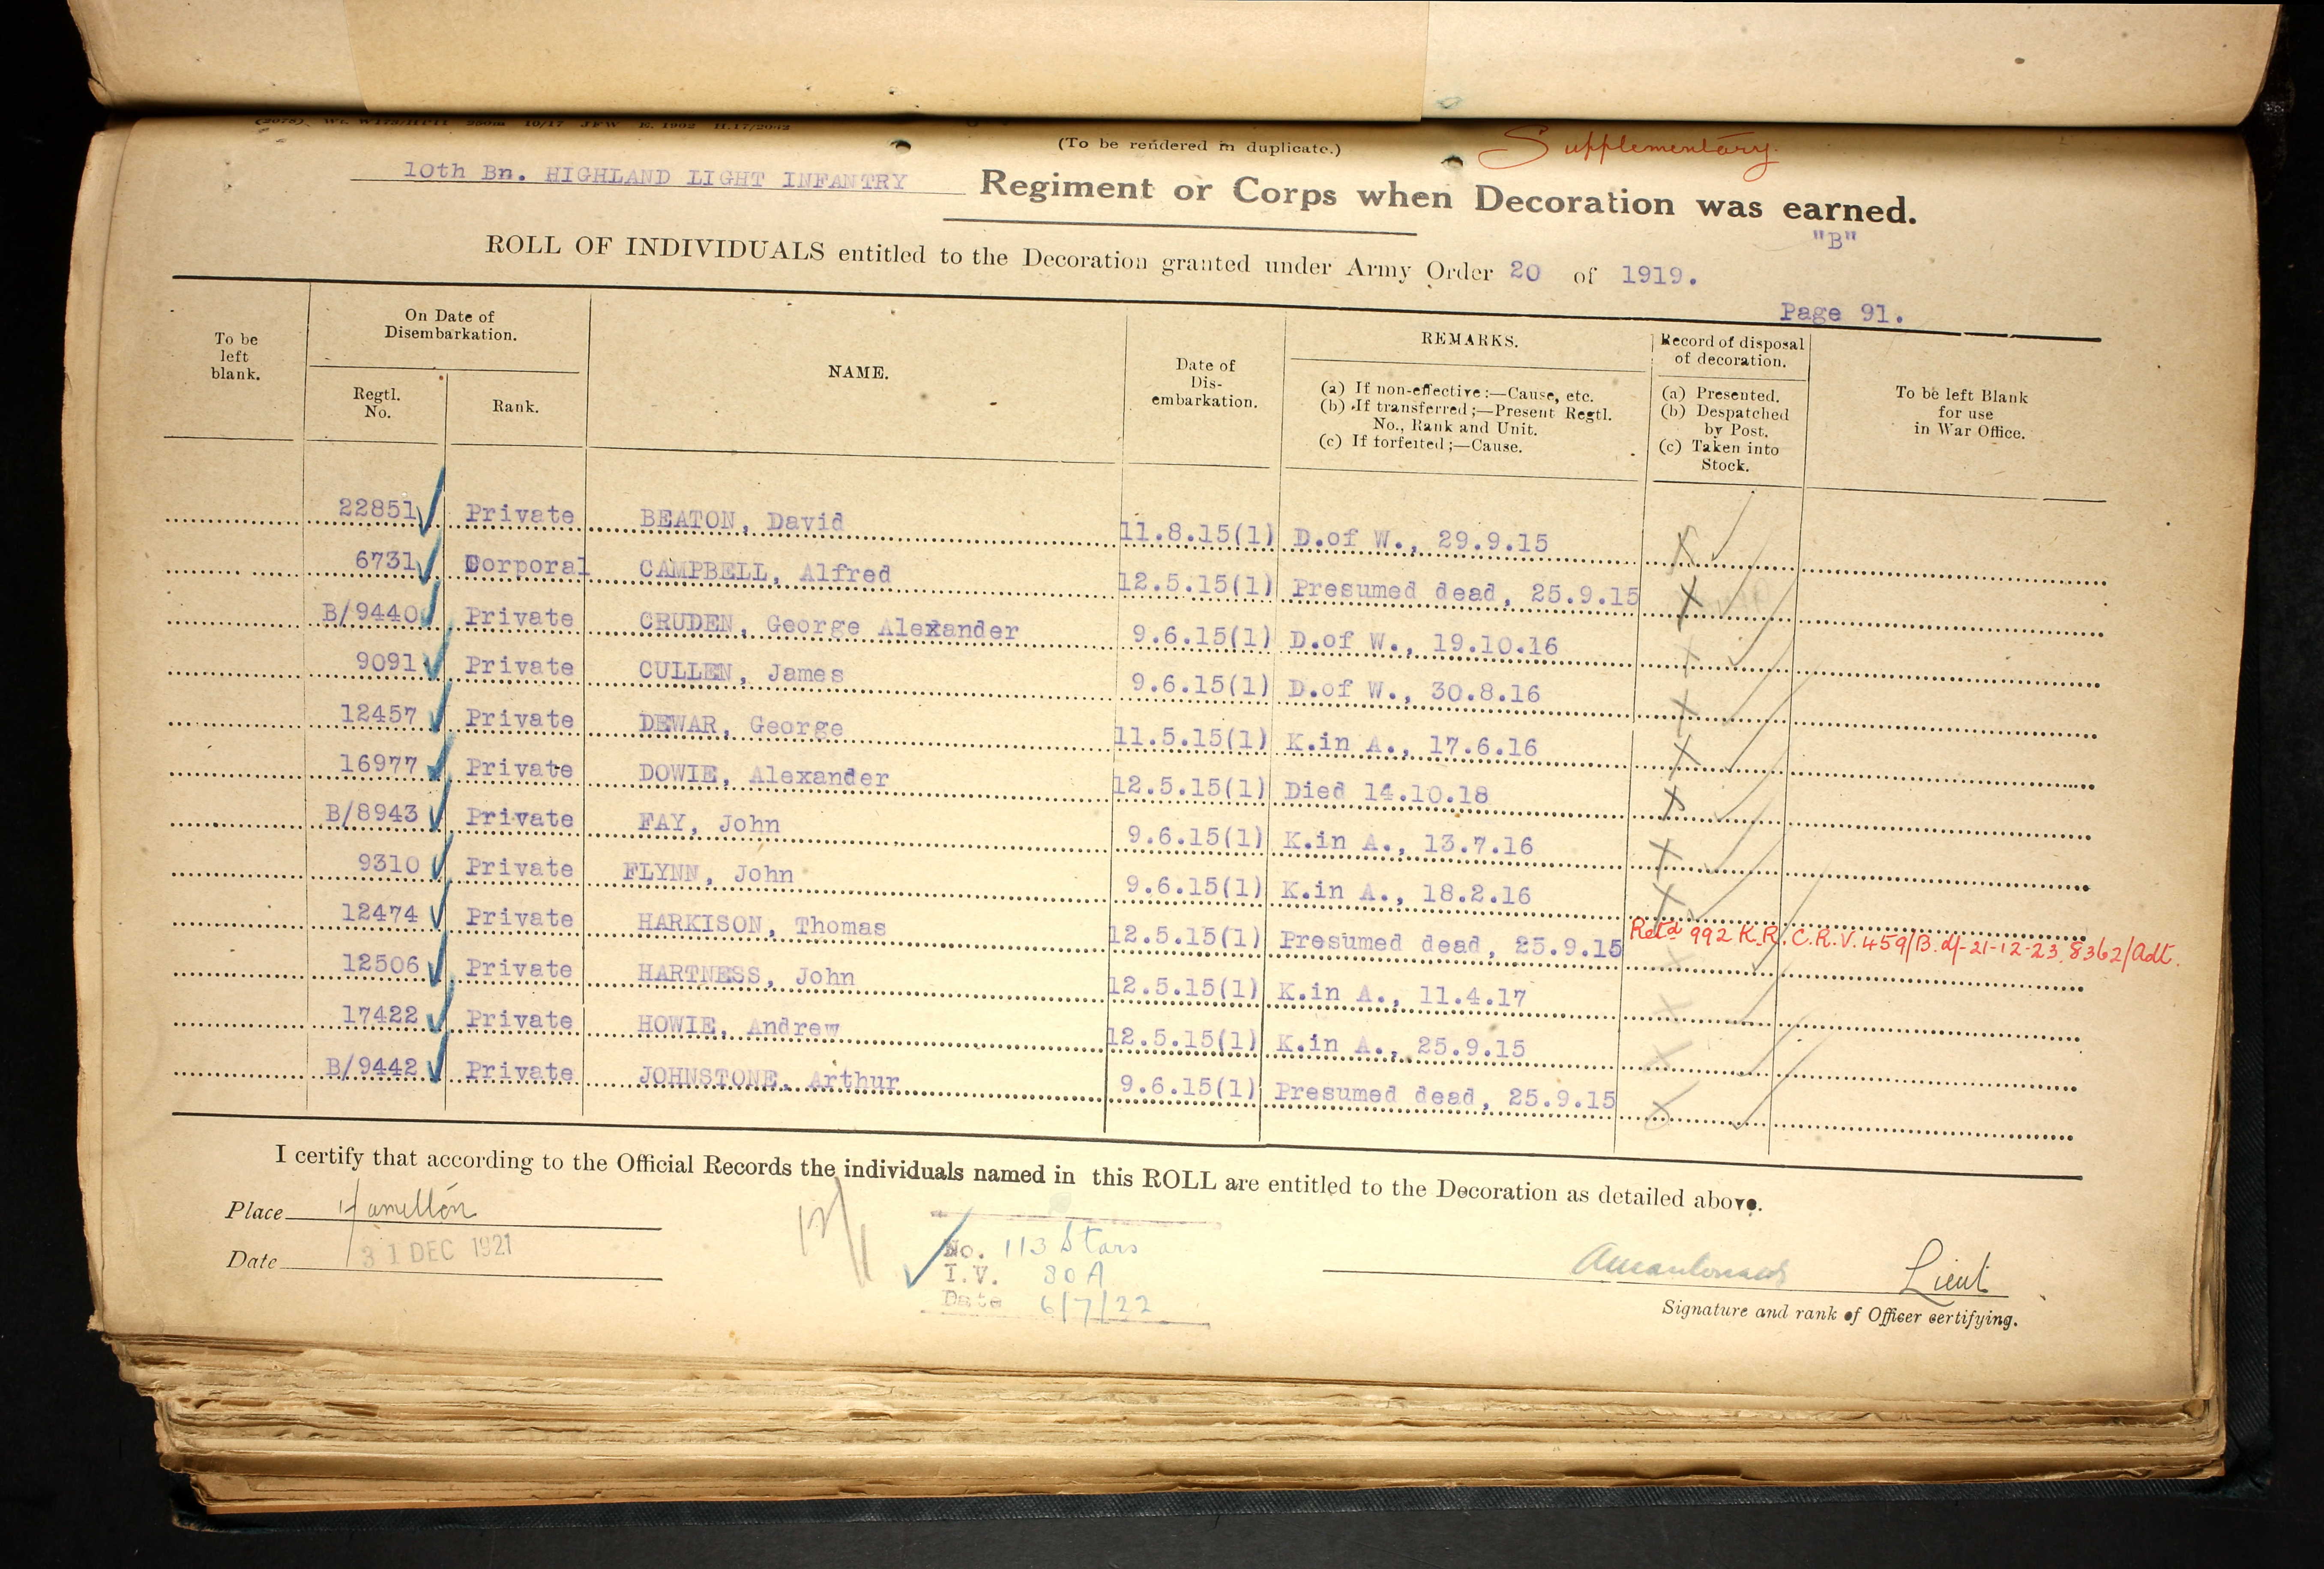 (2078). Wt. W173/H141 250m 10/17 JFW E. 1902 H.17/2092
(To be rendered in duplicate.)
Supplementary.
10th Bn. HIGHLAND LIGHT INFANTRY Regiment or Corps when Decoration was earned.
"B"
ROLL OF INDIVIDUALS entitled to the Decoration granted under Army Order 20 of 1919.
Page 91.
To be left blank.
On Date of Disembarkation.
Regtl. No.
Rank.
NAME.
Date of Dis-embarkation.
REMARKS.
(a) If non-effective:—Cause, etc.
(b) If transferred;—Present Regtl. No., Rank and Unit.
(c) If forfeited;—Cause.
Record of disposal of decoration.
(a) Presented.
(b) Despatched by Post.
(c) Taken into Stock.
To be left Blank for use in War Office.
22851 Private BEATON, David 11.8.15(1) D.of W., 29.9.15
6731 Corporal CAMPBELL, Alfred 12.5.15(1) Presumed dead, 25.9.15
B/9440 Private CRUDEN, George Alexander 9.6.15(1) D.of W., 19.10.16
9091 Private CULLEN, James 9.6.15(1) D.of W., 30.8.16
12457 Private DEWAR, George 11.5.15(1) K.in A., 17.6.16
16977 Private DOWIE, Alexander 12.5.15(1) Died 14.10.18
B/8943 Private FAY, John 9.6.15(1) K.in A., 13.7.16
9310 Private FLYNN, John 9.6.15(1) K.in A., 18.2.16
12474 Private HARKISON, Thomas 12.5.15(1) Presumed dead, 25.9.15 Retd 992 K.R. C.R.V. 459/B. d/- 21-12-23. 8362/Adt.
12506 Private HARTNESS, John 12.5.15(1) K.in A., 11.4.17
17422 Private HOWIE, Andrew 12.5.15(1) K.in A., 25.9.15
B/9442 Private JOHNSTONE, Arthur 9.6.15(1) Presumed dead, 25.9.15
I certify that according to the Official Records the individuals named in this ROLL are entitled to the Decoration as detailed above.
Place Hamilton
Date 31 DEC 1921
No. 113 Stars
I.V. 80A
Date 6/7/22
Lieut
Signature and rank of Officer certifying.